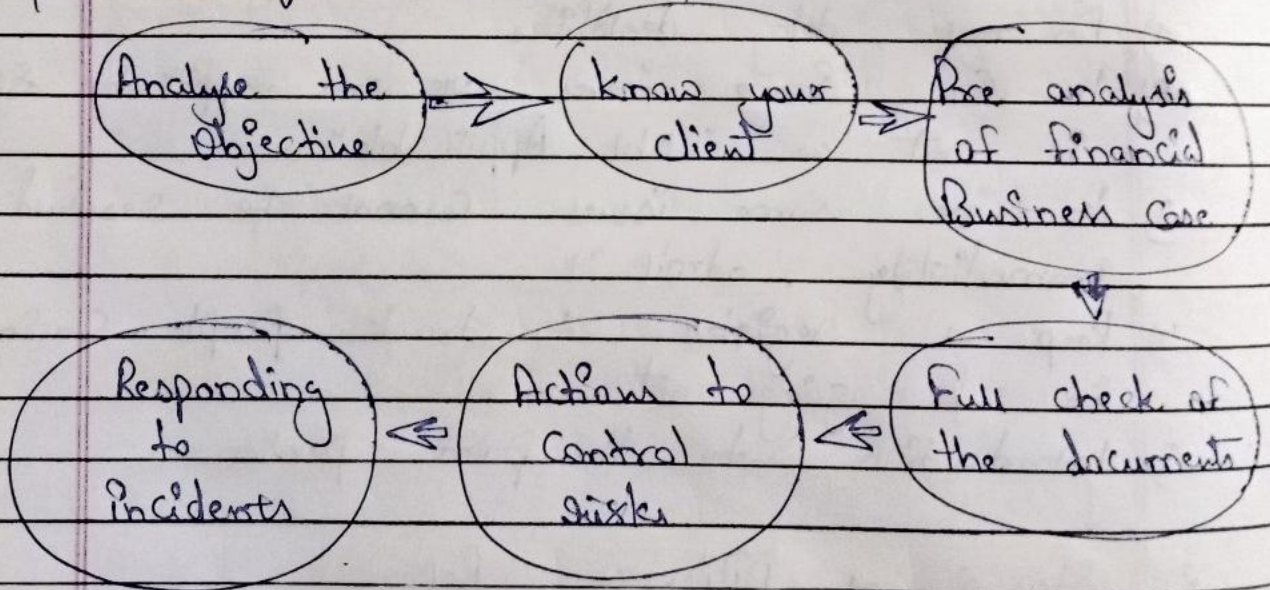 Analyse the
Objective
Know your
client
Pre analysis
of financial
Business Case
Full check of
the documents
Actions to
Control
risks
Responding
to
incidents